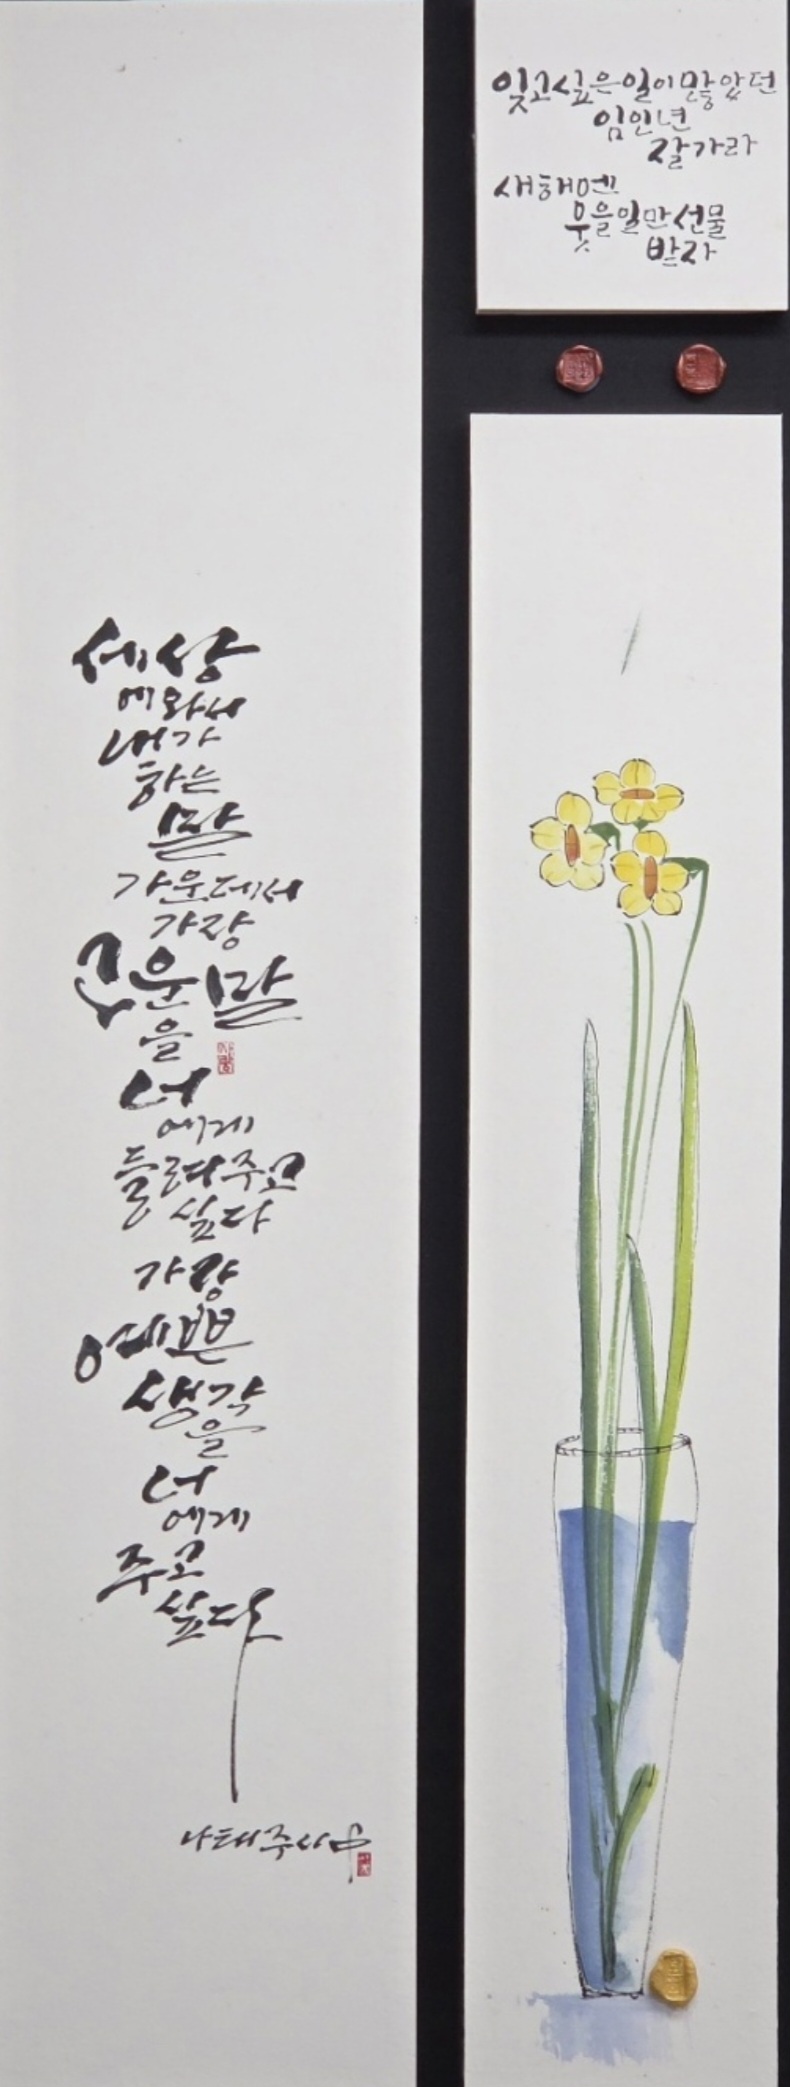 세상
에 와서
내가
하는
말
가운데서
가장
고운 말
을
너
에게
들려주고
싶다
가장
예쁜
생각
을
너
에게
주고
싶다
나태주 시
잊고 싶은 일이 많았던
임인년
잘 가라
새해엔
웃을 일만 선물
받자